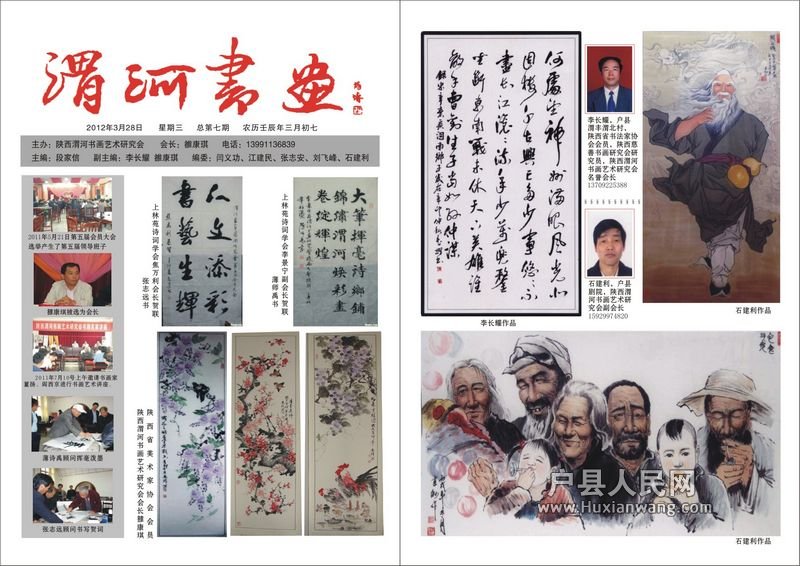 渭河书画
2012年3月28日 星期三 总第七期 农历壬辰年三月初七
主办：陕西渭河书画艺术研究会 会长：雒康琪 电话：13991136839
主编：段家信 副主编：李长耀 雒康琪 编委：闫义功、江建民、张志安、刘飞峰、石建利
2011年5月21日第五届会员大会
选举产生了第五届领导班子
雒康琪被选为会长
2011年7月10号上午邀请书画家
夏扬、阎西京进行书画艺术讲座。
薄诗禹顾问挥毫泼墨
张志远顾问书写贺词
仁文添彩
書藝生輝
上林苑诗词学会焦万利会长贺联
张志远书
大筆揮毫詩鄉鋪
錦繡渭河煥彩畫
卷綻輝煌
上林苑诗词学会李景宁副会长贺联
薄师禹书
陕西省美术家协会会员
陕西渭河书画艺术研究会会长雒康琪
何處望神州滿眼風光北
固樓千古興亡多少事悠悠不
盡長江滾滾流年少萬兜鍪
坐斷東南戰未休天下英雄誰
敵手曹劉生子當如孙仲謀
李长耀作品
李长耀、户县
渭丰渭北村、
陕西省书法家协
会会员、陕西慈
善书画研究会研
究员、陕西渭河
书画艺术研究会
名誉会长
13709225388
石建利、户县
剧院、陕西渭
河书画艺术研
究会副会长
15929974820
石建利作品
户县人民网
www.Huxianwang.com
石建利作品